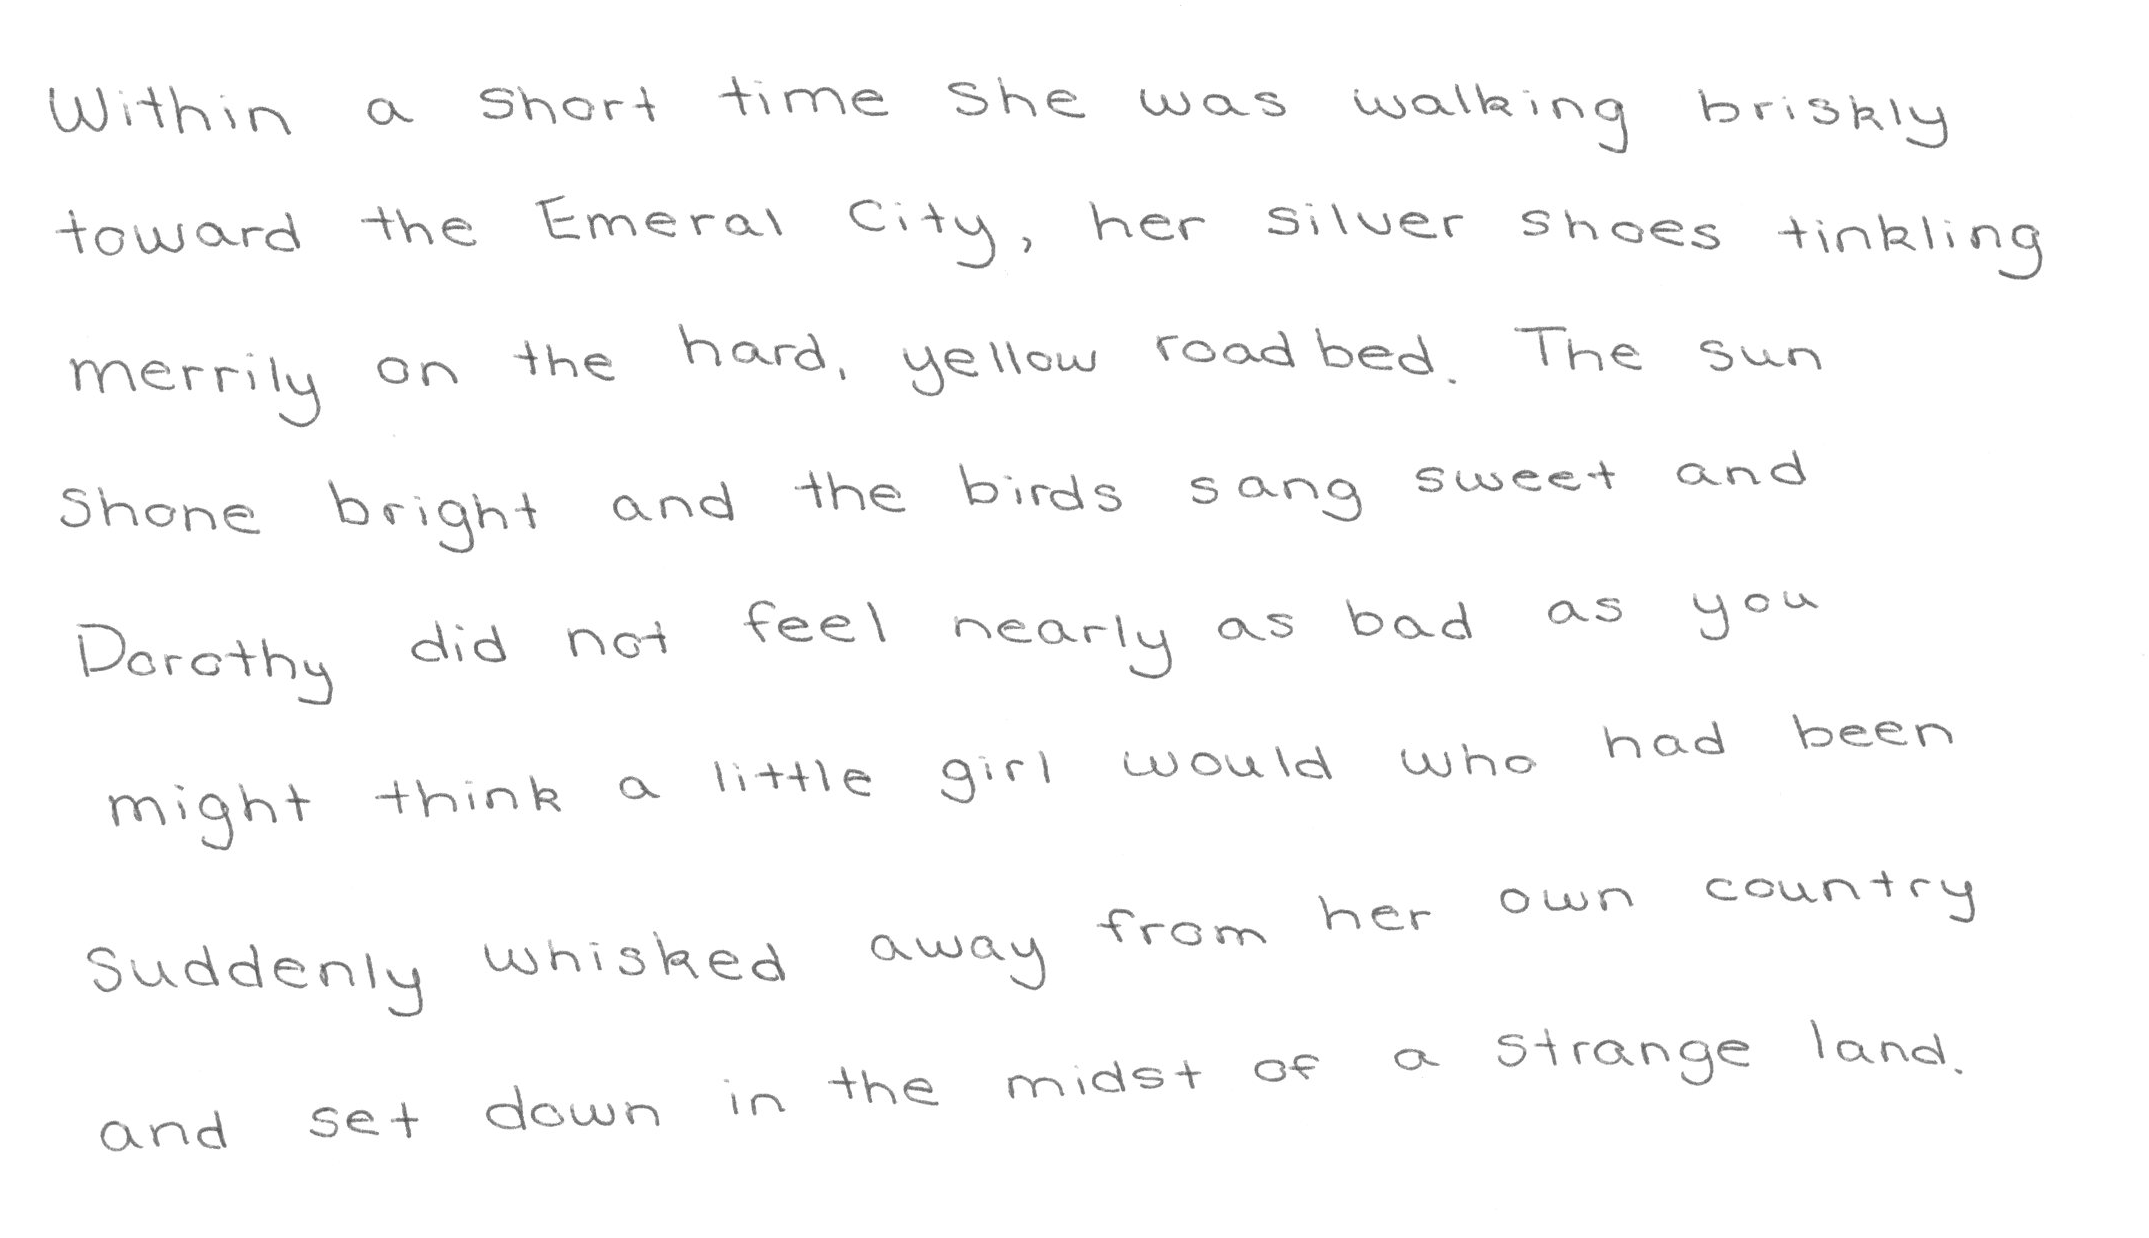 Within a short time she was walking briskly
toward the Emeral City, her silver shoes tinkling
merrily on the hard, yellow road bed. The sun
shone bright and the birds sang sweet and
Dorothy did not feel nearly as bad as you
might think a little girl would who had been
suddenly whisked away from her own country
and set down in the midst of a strange land.